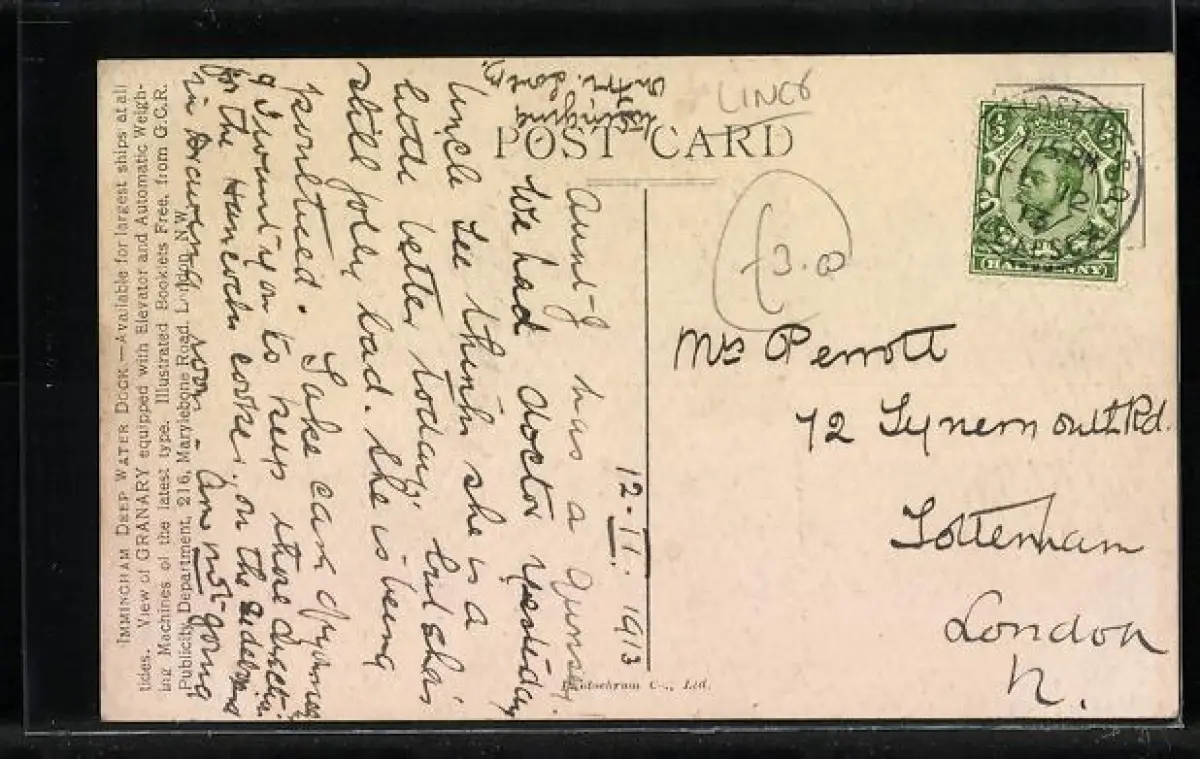 POST CARD
LINCS
£3.00
12-II. 1913
Aunty has a quinsy.
We had doctor yesterday
Uncle Lee thinks she is a
little better today but she's
still jolly bad. She is being
poulticed. Take care of yourself
I want to keep those
for the Hancocks cooker, on the sideboard
in room - Am not going
Mrs Perrott
72 Tynemouth Rd.
Tottenham
London
N.
HALFPENNY
IMMINGHAM DEEP WATER DOCK.—Available for largest ships at all
tides. View of GRANARY equipped with Elevator and Automatic Weigh-
ing Machines of the latest type. Illustrated Booklets Free, from G.C.R.
Publicity Department, 216, Marylebone Road, London, N.W.
Photochrom Co., Ltd.